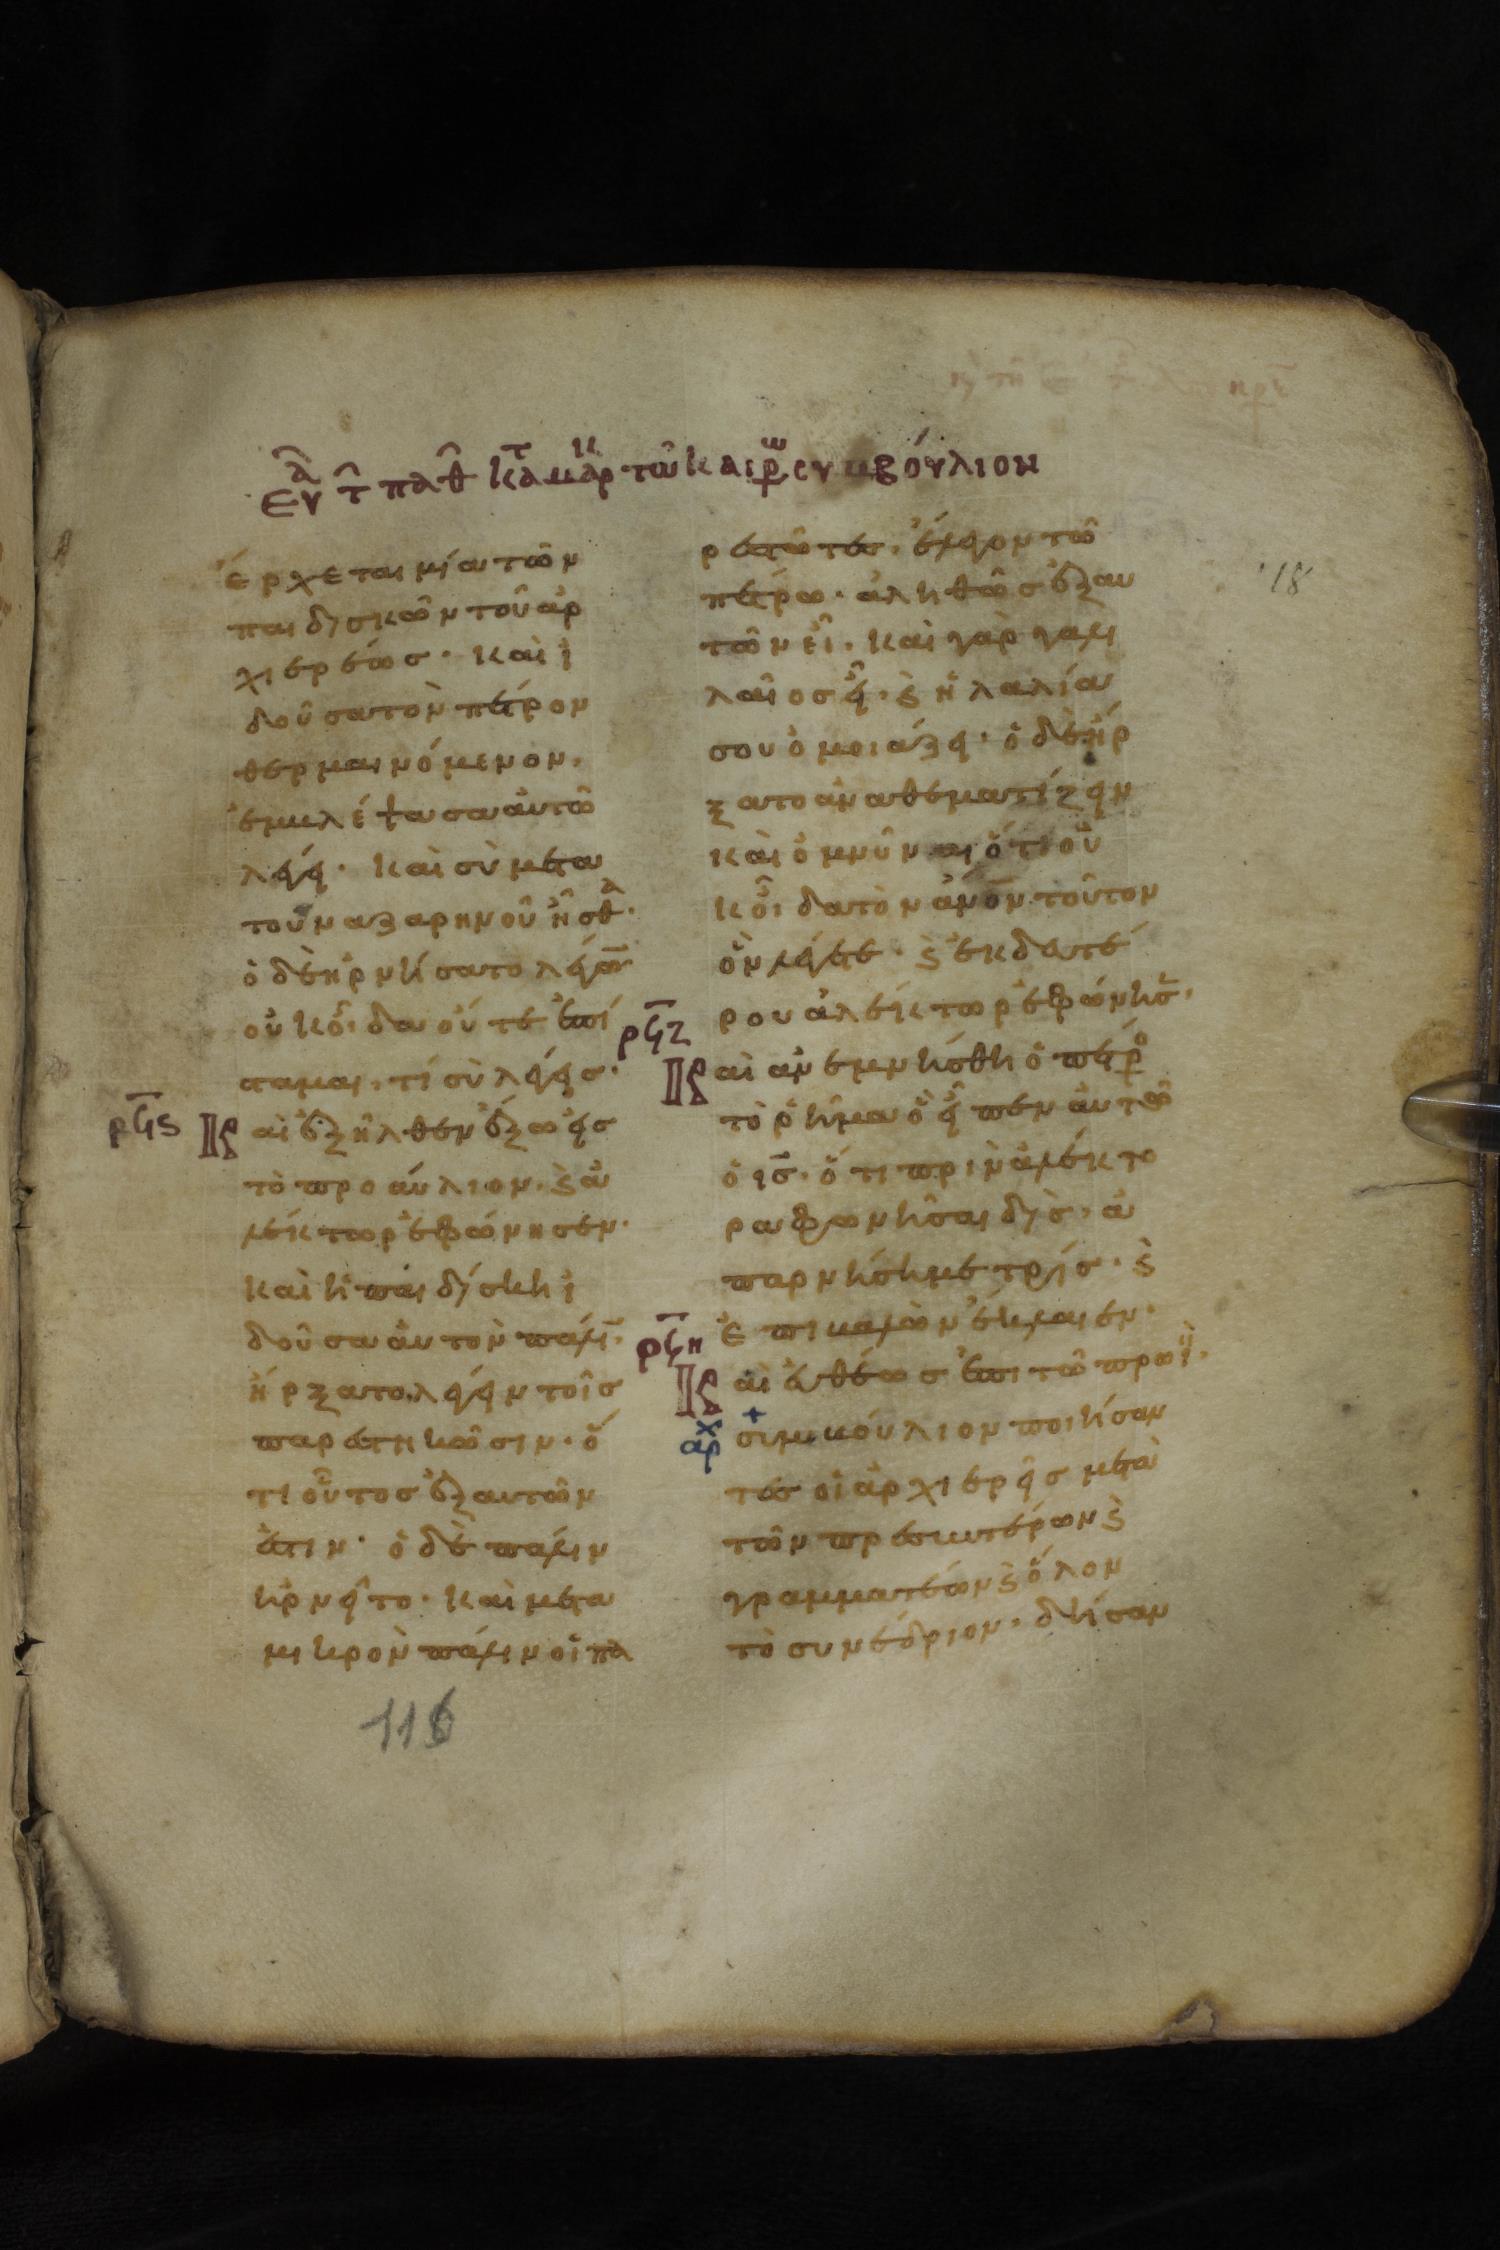 ευα τ παθ κτ α μαρκ τω καιρω συμβούλιον
118
έρχεται μία τῶν
παιδισκῶν τοῦ ἀρ
χιερέωσ· καὶ ἰ
δοῦσα τὸν πέτρον
θερμαινόμενον,
ἐμβλέψασα αὐτῶ
λέγει· καὶ σὺ μετα
τοῦ ναζαρηνοῦ ἦσθα·
ὁ δὲ ἠρνήσατο λέγων
οὐκ οἶδα οὔτε ἐπί
σταμαι, τί σὺ λέγεισ·
ρϟϛ
Καὶ ἐξῆλθεν ἔξω εἰσ
τὸ προαύλιον, ϗ ἀ
λέκτωρ ἐφώνησεν·
καὶ ἡ παιδίσκη ἰ
δοῦσα αὐτὸν πάλιν,
ἤρξατο λέγειν τοῖσ
παρεστηκῶσιν· ὅ
τι οὗτοσ ἐξ αυτῶν
ἐστιν· ὁ δὲ πάλιν
ἠρνεῖτο· καὶ μετα
μικρὸν πάλιν οἱ πα
ρεστῶτεσ, ἔλεγον τῶ
πέτρω· ἀληθῶσ ἐξ αυ
τῶν εἶ· καὶ γὰρ γαλι
λαῖοσ εἶ· ϗ ἡ λαλία
σου ὁμοιάζει· ὁ δὲ ἤρ
ξατο ἀναθεματίζειν
καὶ ὀμνῦναι ὅτι οὐ
κ οἶδα τὸν ἄνον τοῦτον
ὃν λέγετε· ϗ ἐκ δευτέ
ρου ἀλέκτωρ ἐφώνησ·
ρϟζ
Καὶ ἀνεμνήσθη ὁ πέτρο
τὸ ῥῆμα ὃ εἶπεν αὐτῶ
ὁ ισ· ὅτι πρὶν ἀλέκτο
ρα φωνῆσαι δὶσ, ἀ
παρνήση με τρίσ· ϗ
ἐπιβαλὼν ἔκλαιεν·
ρϟη
Καὶ εὐθέωσ ἐπὶ τῶ πρωῒ·
αρχ
+
συμβούλιον ποιήσαν
τεσ οἱ ἀρχιερεῖσ μετὰ
τῶν πρεσβυτέρων ϗ
γραμματέων ϗ ὅλον
τὸ συνέδριον· δήσαν
116